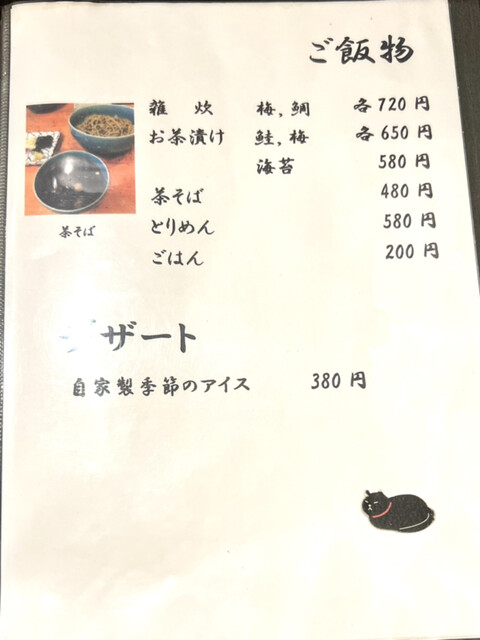 ご飯物
雑 炊 梅,鯛 各720円
お茶漬け 鮭,梅 各650円
海苔 580円
茶そば 480円
とりめん 580円
ごはん 200円
茶そば
デザート
自家製季節のアイス 380円